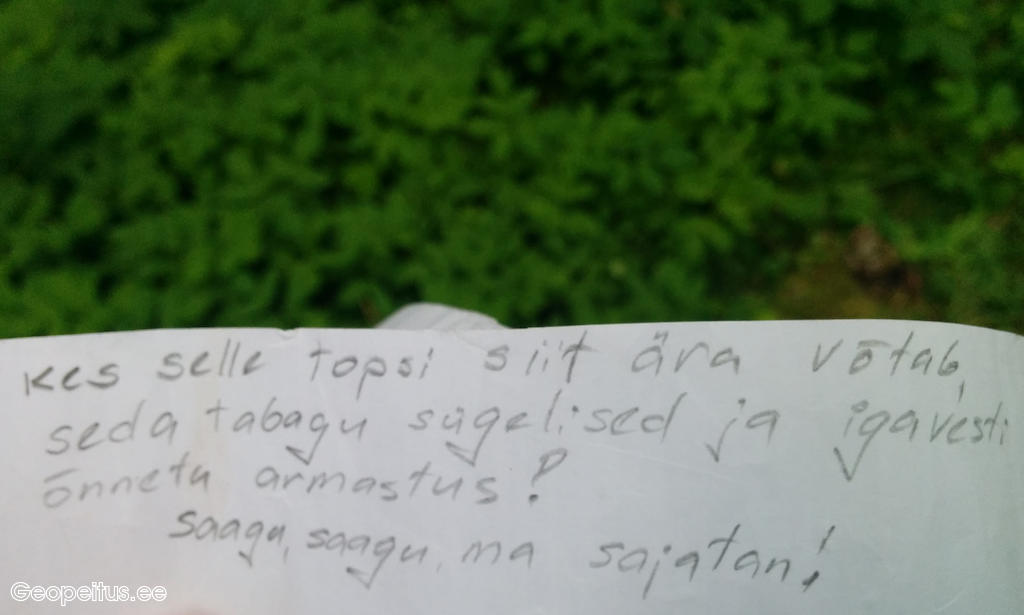 kes selle topsi siit ära võtab,
seda tabagu sügelised ja igavesti
õnnetu armastus?
saagu, saagu, ma sajatan!
Geopeitus.ee